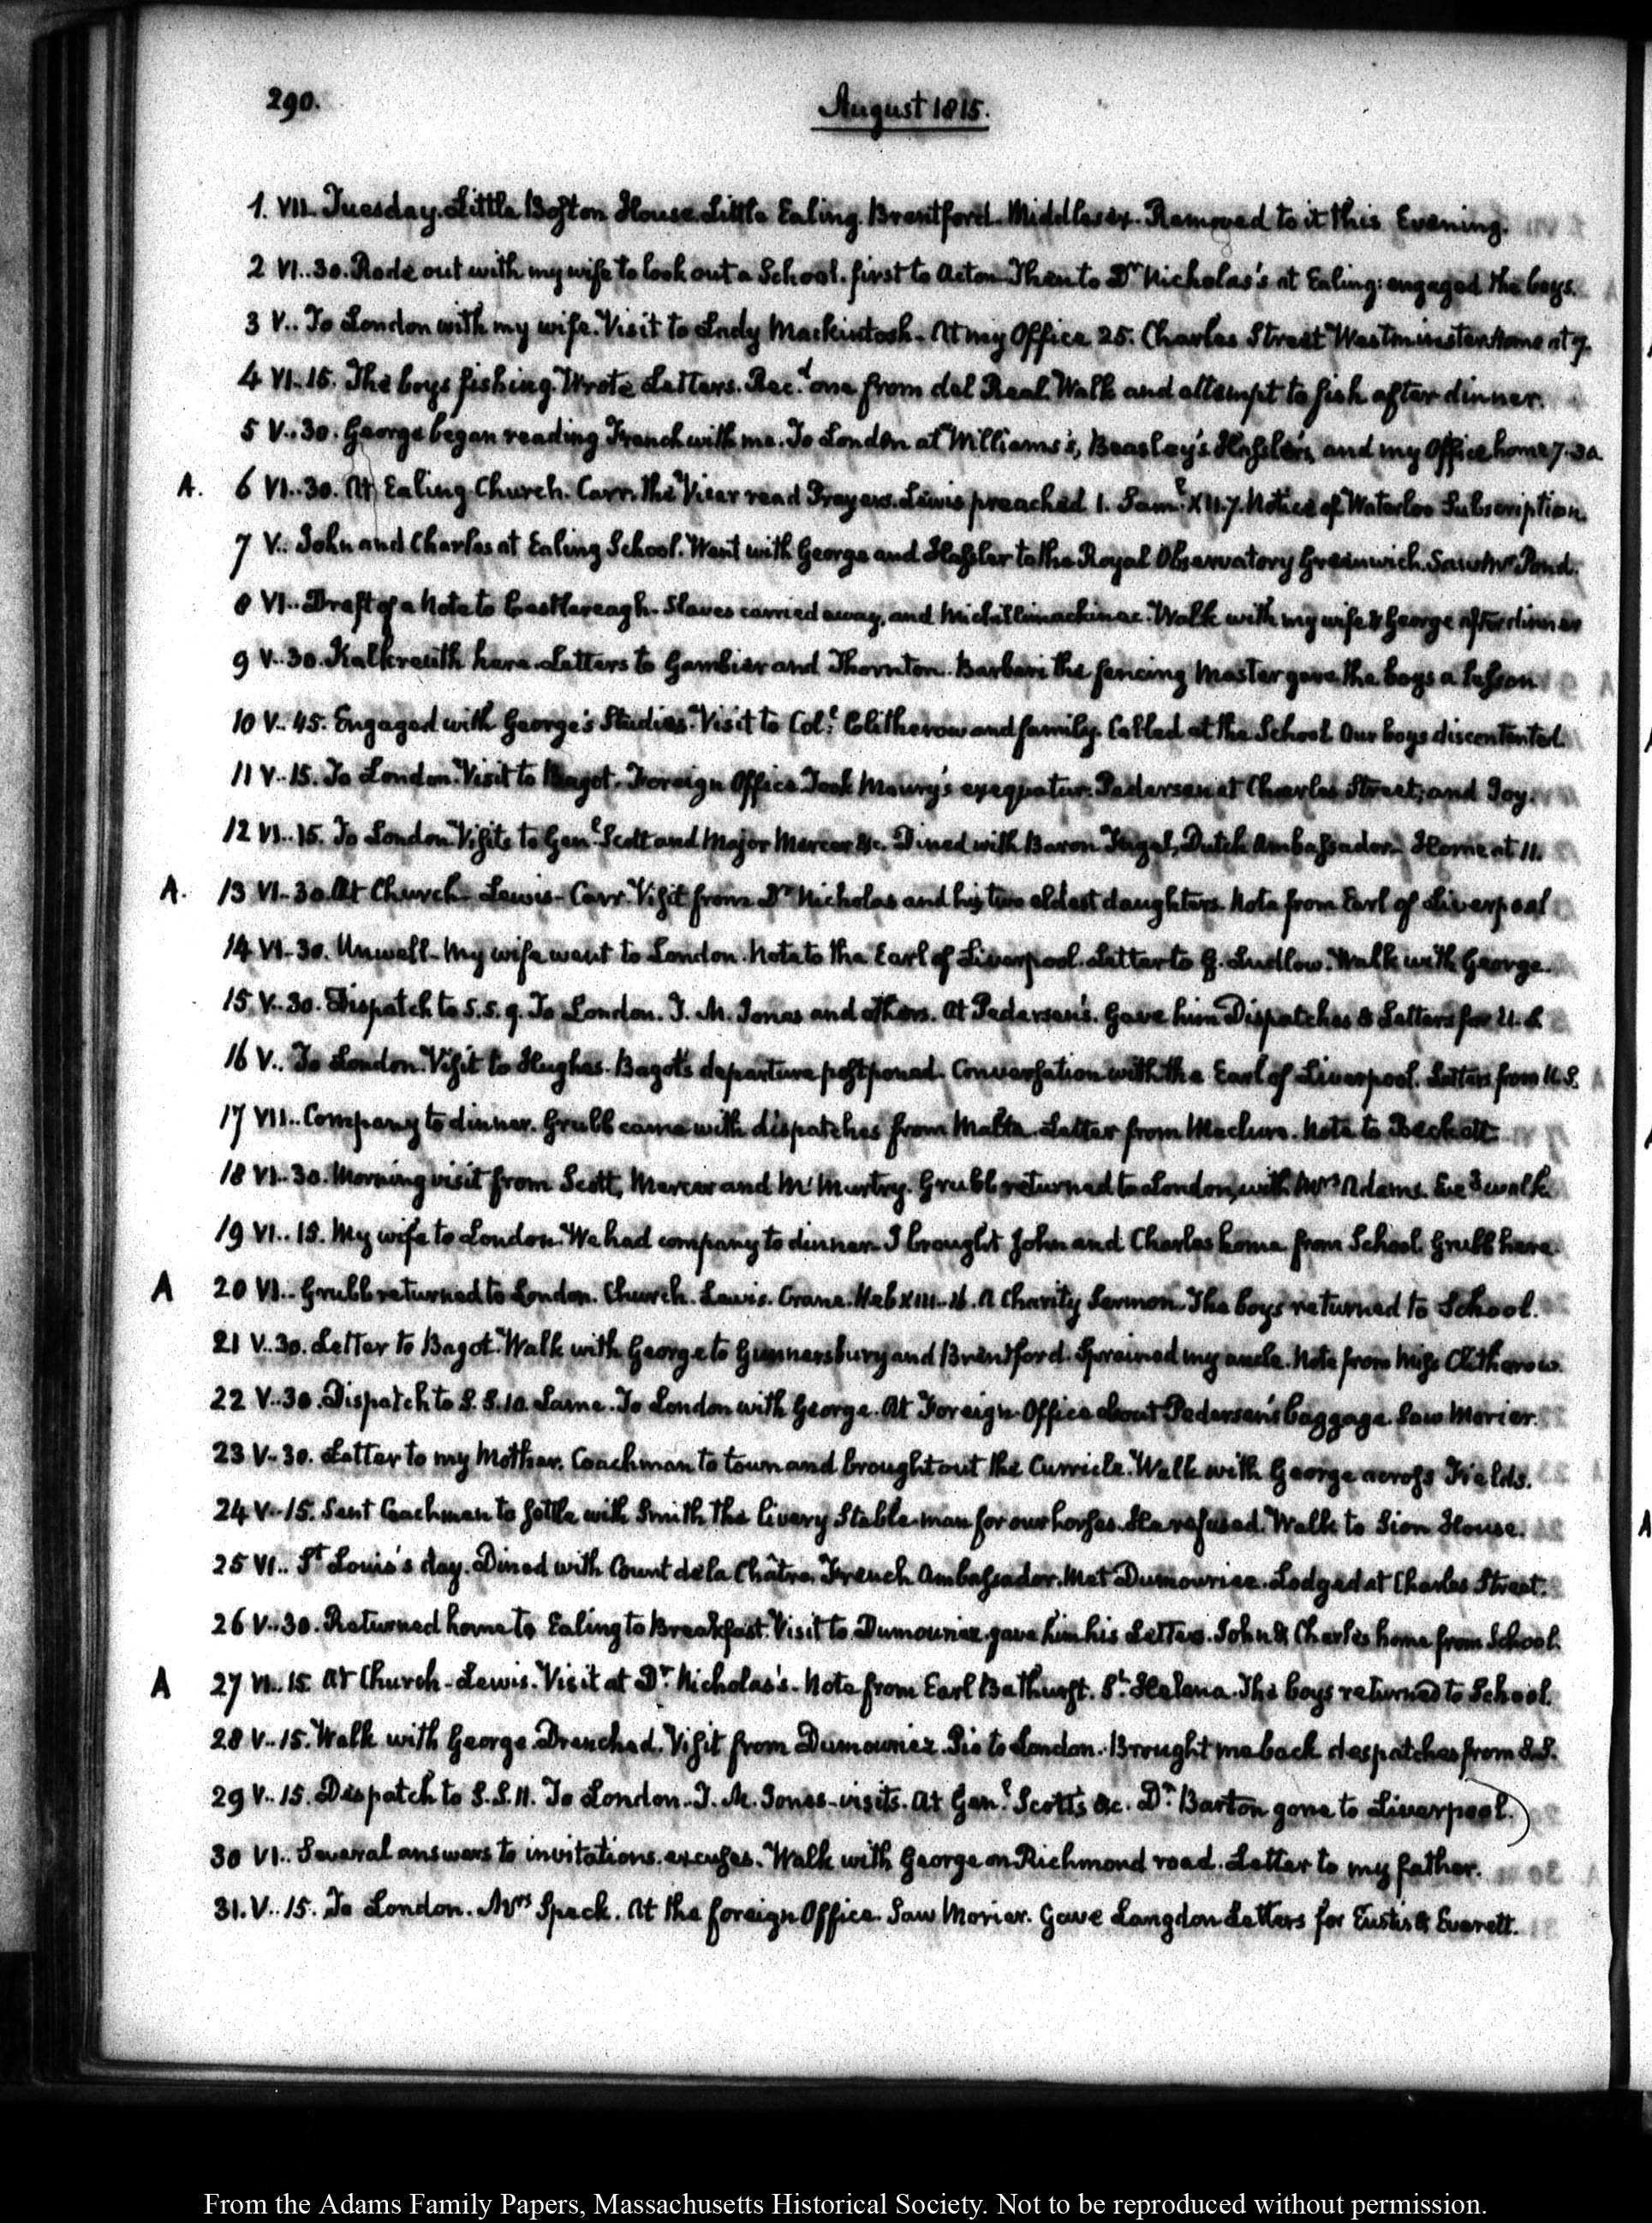 290.
August 1815.
1. VII. Tuesday. Little Boston House. Little Ealing. Brentford. Middlesex. Removed to it this Evening.
2 VI..30. Rode out with my wife to look out a School. first to Acton. Then to Dr. Nicholas's at Ealing: engaged the boys.
3 V.. To London with my wife. Visit to Lady Mackintosh. At my Office 25. Charles Street Westminster. Home at 7.
4 VI..15. The boys fishing. Wrote Letters. Rec.d one from del Real. Walk and attempt to fish after dinner.
5 V..30. George began reading French with me. To London at Williams's, Beasley's Hassler's, and my Office home 7.30.
A. 6 VI..30. At Ealing Church. Carr. The Vicar read Prayers. Lewis preached 1. Sam.l XII.7. Notice of Waterloo Subscription.
7 V.. John and Charles at Ealing School. Went with George and Hassler to the Royal Observatory Greenwich. Saw Mr Pond.
8 VI.. Draft of a Note to Castlereagh. Slaves carried away, and Michillimackinac. Walk with my wife & George after dinner
9 V..30. Kalkreuth here. Letters to Gambier and Thornton. Barberi the fencing Master gave the boys a lesson
10 V..45. Engaged with George's Studies. Visit to Col.l Clitherow and family. Called at the School Our boys discontented.
11 V..15. To London. Visit to Bagot. Foreign Office Took Maury's exequatur. Pedersen at Charles Street, and Joy.
12 VI..15. To London Visits to Gen.l Scott and Major Mercer &c. Dined with Baron Fagel, Dutch Ambassador. Home at 11.
A. 13 VI..30. At Church. Lewis. Carr. Visit from Dr Nicholas and his two eldest daughters. Note from Earl of Liverpool
14 VI..30. Unwell. My wife went to London. Note to the Earl of Liverpool. Letter to G. Ludlow. Walk with George.
15 V..30. Dispatch to S.S. 9. To London. T. M. Jones and others. At Pedersen's. Gave him Dispatches & Letters for U.S.
16 V.. To London. Visit to Hughes. Bagot's departure postponed. Conversation with the Earl of Liverpool. Letters from U.S.
17 VII.. Company to dinner. Grubb came with dispatches from Malta. Letter from Maclure. Note to Beckett.
18 VI..30. Morning visit from Scott, Mercer and McMurtry. Grubb returned to London, with Mrs Adams. Eve.g walk.
19 VI..15. My wife to London. We had company to dinner. I brought John and Charles home from School. Grubb here.
A 20 VI.. Grubb returned to London. Church. Lewis. Crane. Heb XIII..16. A Charity Sermon. The boys returned to School.
21 V.30. Letter to Bagot. Walk with George to Gunnersbury and Brentford. Sprained my ancle. Note from Miss Clitherow.
22 V..30. Dispatch to S.S. 10. Same. To London with George. At Foreign Office about Pedersen's baggage. Saw Morier.
23 V..30. Letter to my Mother. Coachman to town and brought out the Curricle. Walk with George across Fields.
24 V..15. Sent Coachman to settle with Smith the livery Stable-man for our horses. He refused. Walk to Sion House.
25 VI.. St Louis's day. Dined with Count de la Châtre, French Ambassador. Met Dumouriez. Lodged at Charles Street.
26 V..30. Returned home to Ealing to Breakfast. Visit to Dumouriez. gave him his Letters. John & Charles home from School.
A 27 VI..15 At Church. Lewis. Visit at Dr. Nicholas's. Note from Earl Bathurst. St. Helena. The boys returned to School.
28 V..15. Walk with George. Drenched. Visit from Dumouriez. Pio to London. Brought me back despatches from S.S.
29 V..15. Dispatch to S.S. 11. To London. T. M. Jones. visits. At Gen.l Scott's &c. Dr. Barton gone to Liverpool.
30 VI.. Several answers to invitations. excuses. Walk with George on Richmond road. Letter to my father.
31. V..15. To London. Mrs Speck. At the foreign Office. Saw Morier. Gave Langdon Letters for Eustis & Everett.
From the Adams Family Papers, Massachusetts Historical Society. Not to be reproduced without permission.